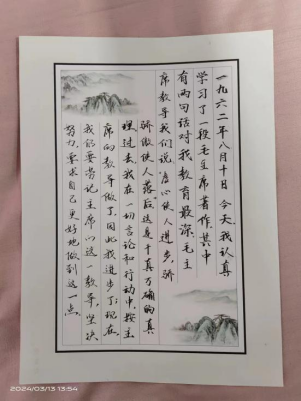 一九六二年八月十日 今天我认真
学习了一段毛主席著作,其中
有两句话对我教育最深。毛主
席教导我们说“虚心使人进步,骄
骄傲使人落后”这是千真万确的真
理。过去我在一切言论和行动中,按主
席的教导做了,因此我进步了;现在
我仍要劳记主席的这一教导,坚决
努力,要求自己更好地做到这一点。
2024/03/13 13:54